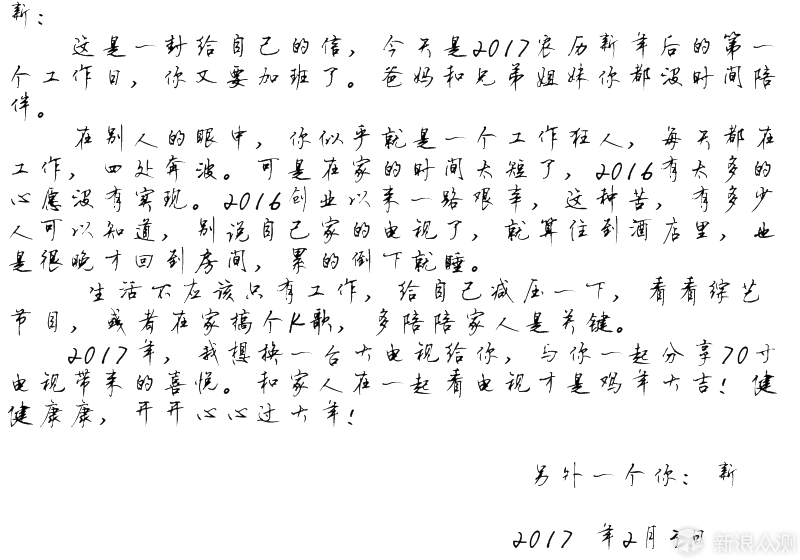 新：
这是一封给自己的信，今天是2017农历新年后的第一
个工作日，你又要加班了。爸妈和兄弟姐妹你都没时间陪
伴。
在别人的眼中，你似乎就是一个工作狂人，每天都在
工作，四处奔波。可是在家的时间太短了，2016有太多的
心愿没有实现。2016创业以来一路艰辛，这种苦，有多少
人可以知道，别说自己家的电视了，就算住到酒店里，也
是很晚才回到房间，累的倒下就睡。
生活不应该只有工作，给自己减压一下，看看综艺
节目，或者在家搞个K歌，多陪陪家人是关键。
2017年，我想换一台大电视给你，与你一起分享70寸
电视带来的喜悦。和家人在一起看电视才是鸡年大吉！健
健康康，开开心心过大年！
另外一个你：新
2017 年2月3日
新浪众测